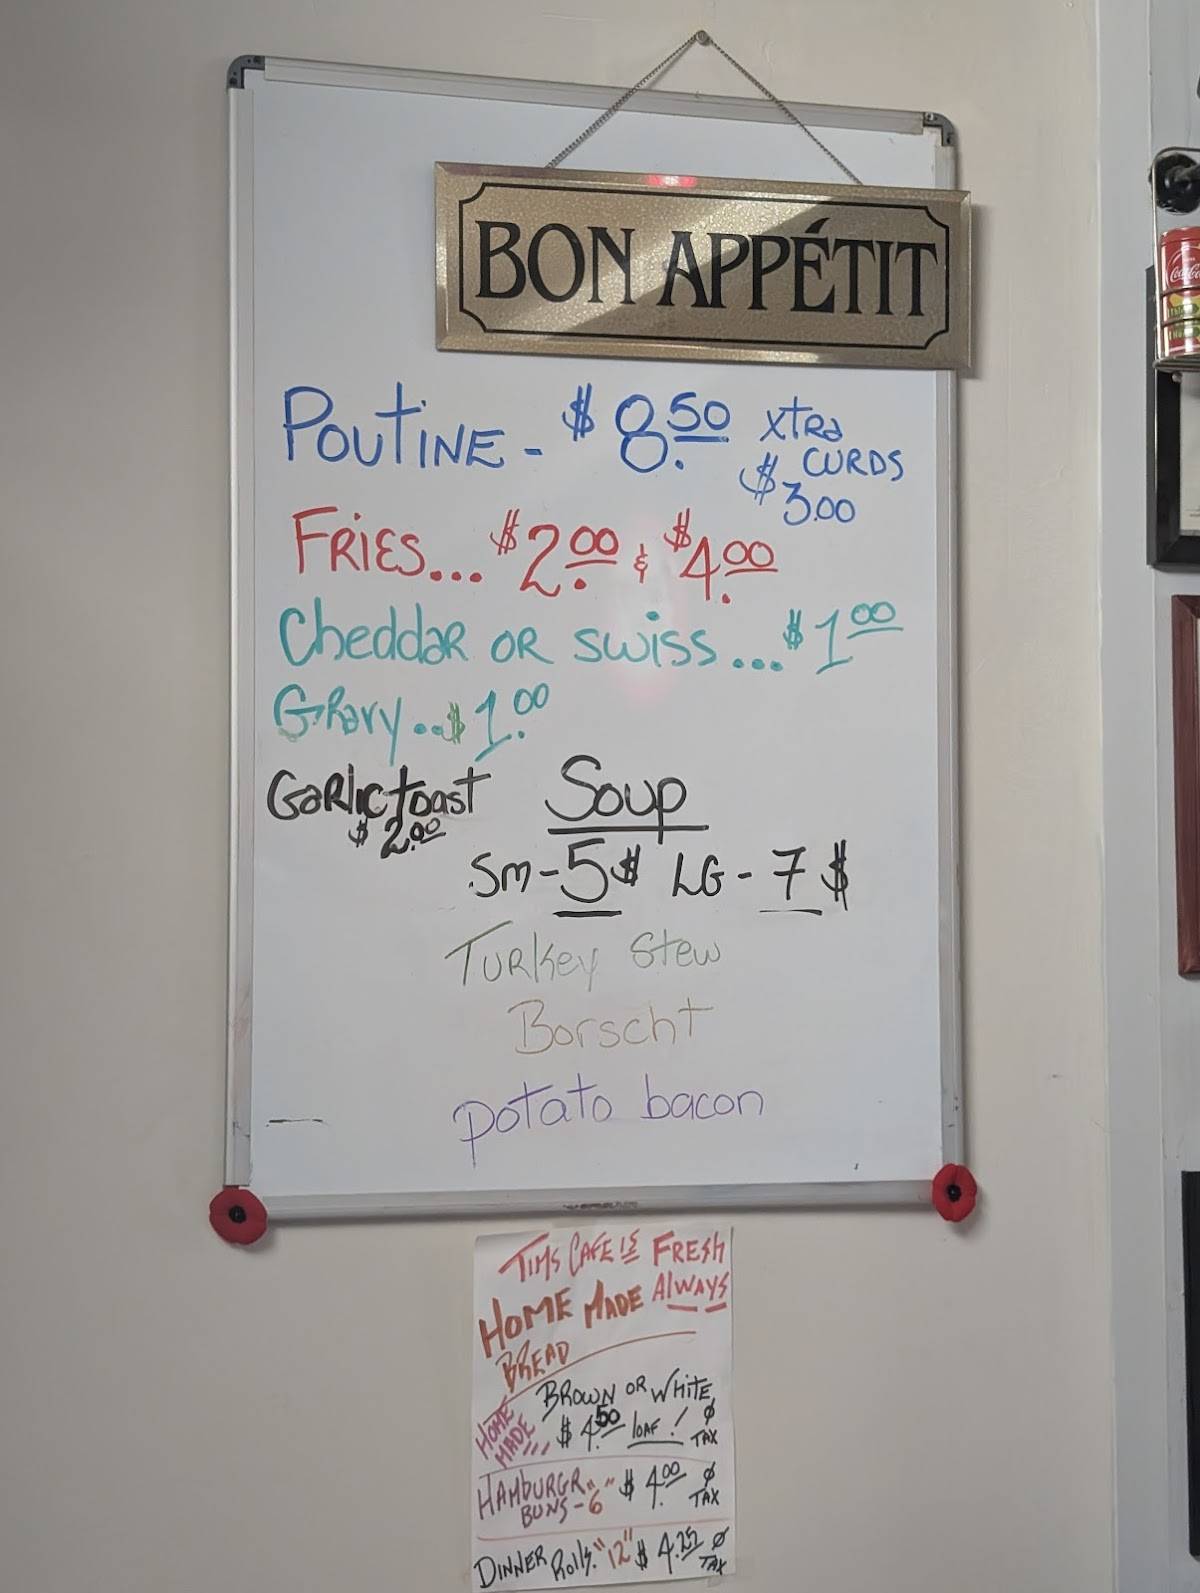 BON APPÉTIT
POUTINE - $ 8.50 XTRA
CURDS
$ 3.00
FRIES... $2.00 & $4.00
Cheddar OR SWISS ... $1.00
GRavy .. $1.00
GaRlic toast
$ 2.00
Soup
Sm - 5$ LG - 7$
TURKey Stew
Borscht
potato bacon
TIMS CAFE IS FRESH
ALWAYS
HOME MADE
BREAD
BROWN OR WHITE
HOME MADE
$ 4.50 LOAF! Ø TAX
HAMBURGR
BUNS - "6" $ 4.00 Ø TAX
DINNER Rolls. "12" $ 4.25 Ø TAX
Coca-Cola